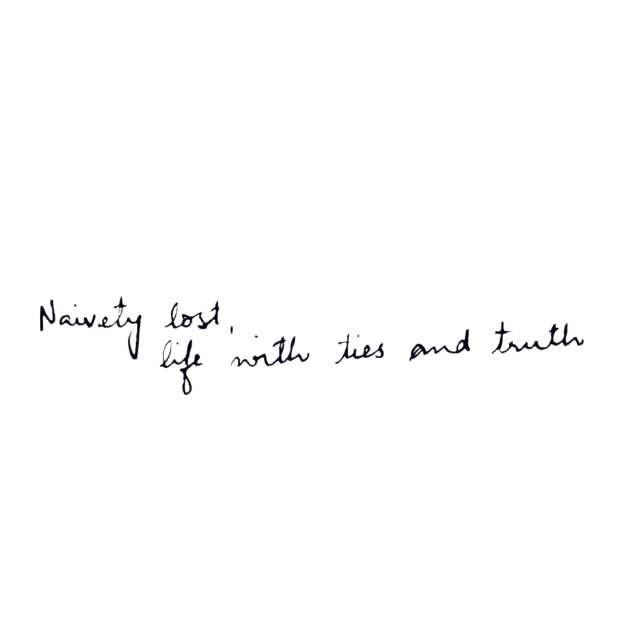 Naivety lost,
life with ties and truth